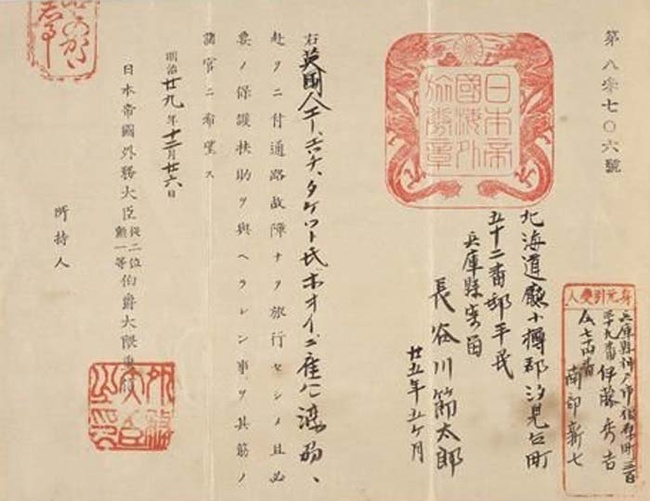 第八七〇六號
身元引受人
兵庫縣神戸市相生町三百
十九番 伊藤秀吉
仝七十四番
南印新七
日本帝
國海外
旅券章
北海道廳小樽郡汐見台町
五十二番邸平民
兵庫縣寄留
長谷川節太郎
廿五年五ヶ月
右英國人エー、エッチ、タケット氏ボオイニ雇ハレ
赴クニ付通路故障ナク旅行セシメ且必
要ノ保護扶助ヲ與ヘラレン事ヲ其筋ノ
諸官ニ希望ス
明治廿九年十二月廿六日
日本帝國外務大臣從二位勲一等伯爵大隈重信
所持人
外務
大臣
之印